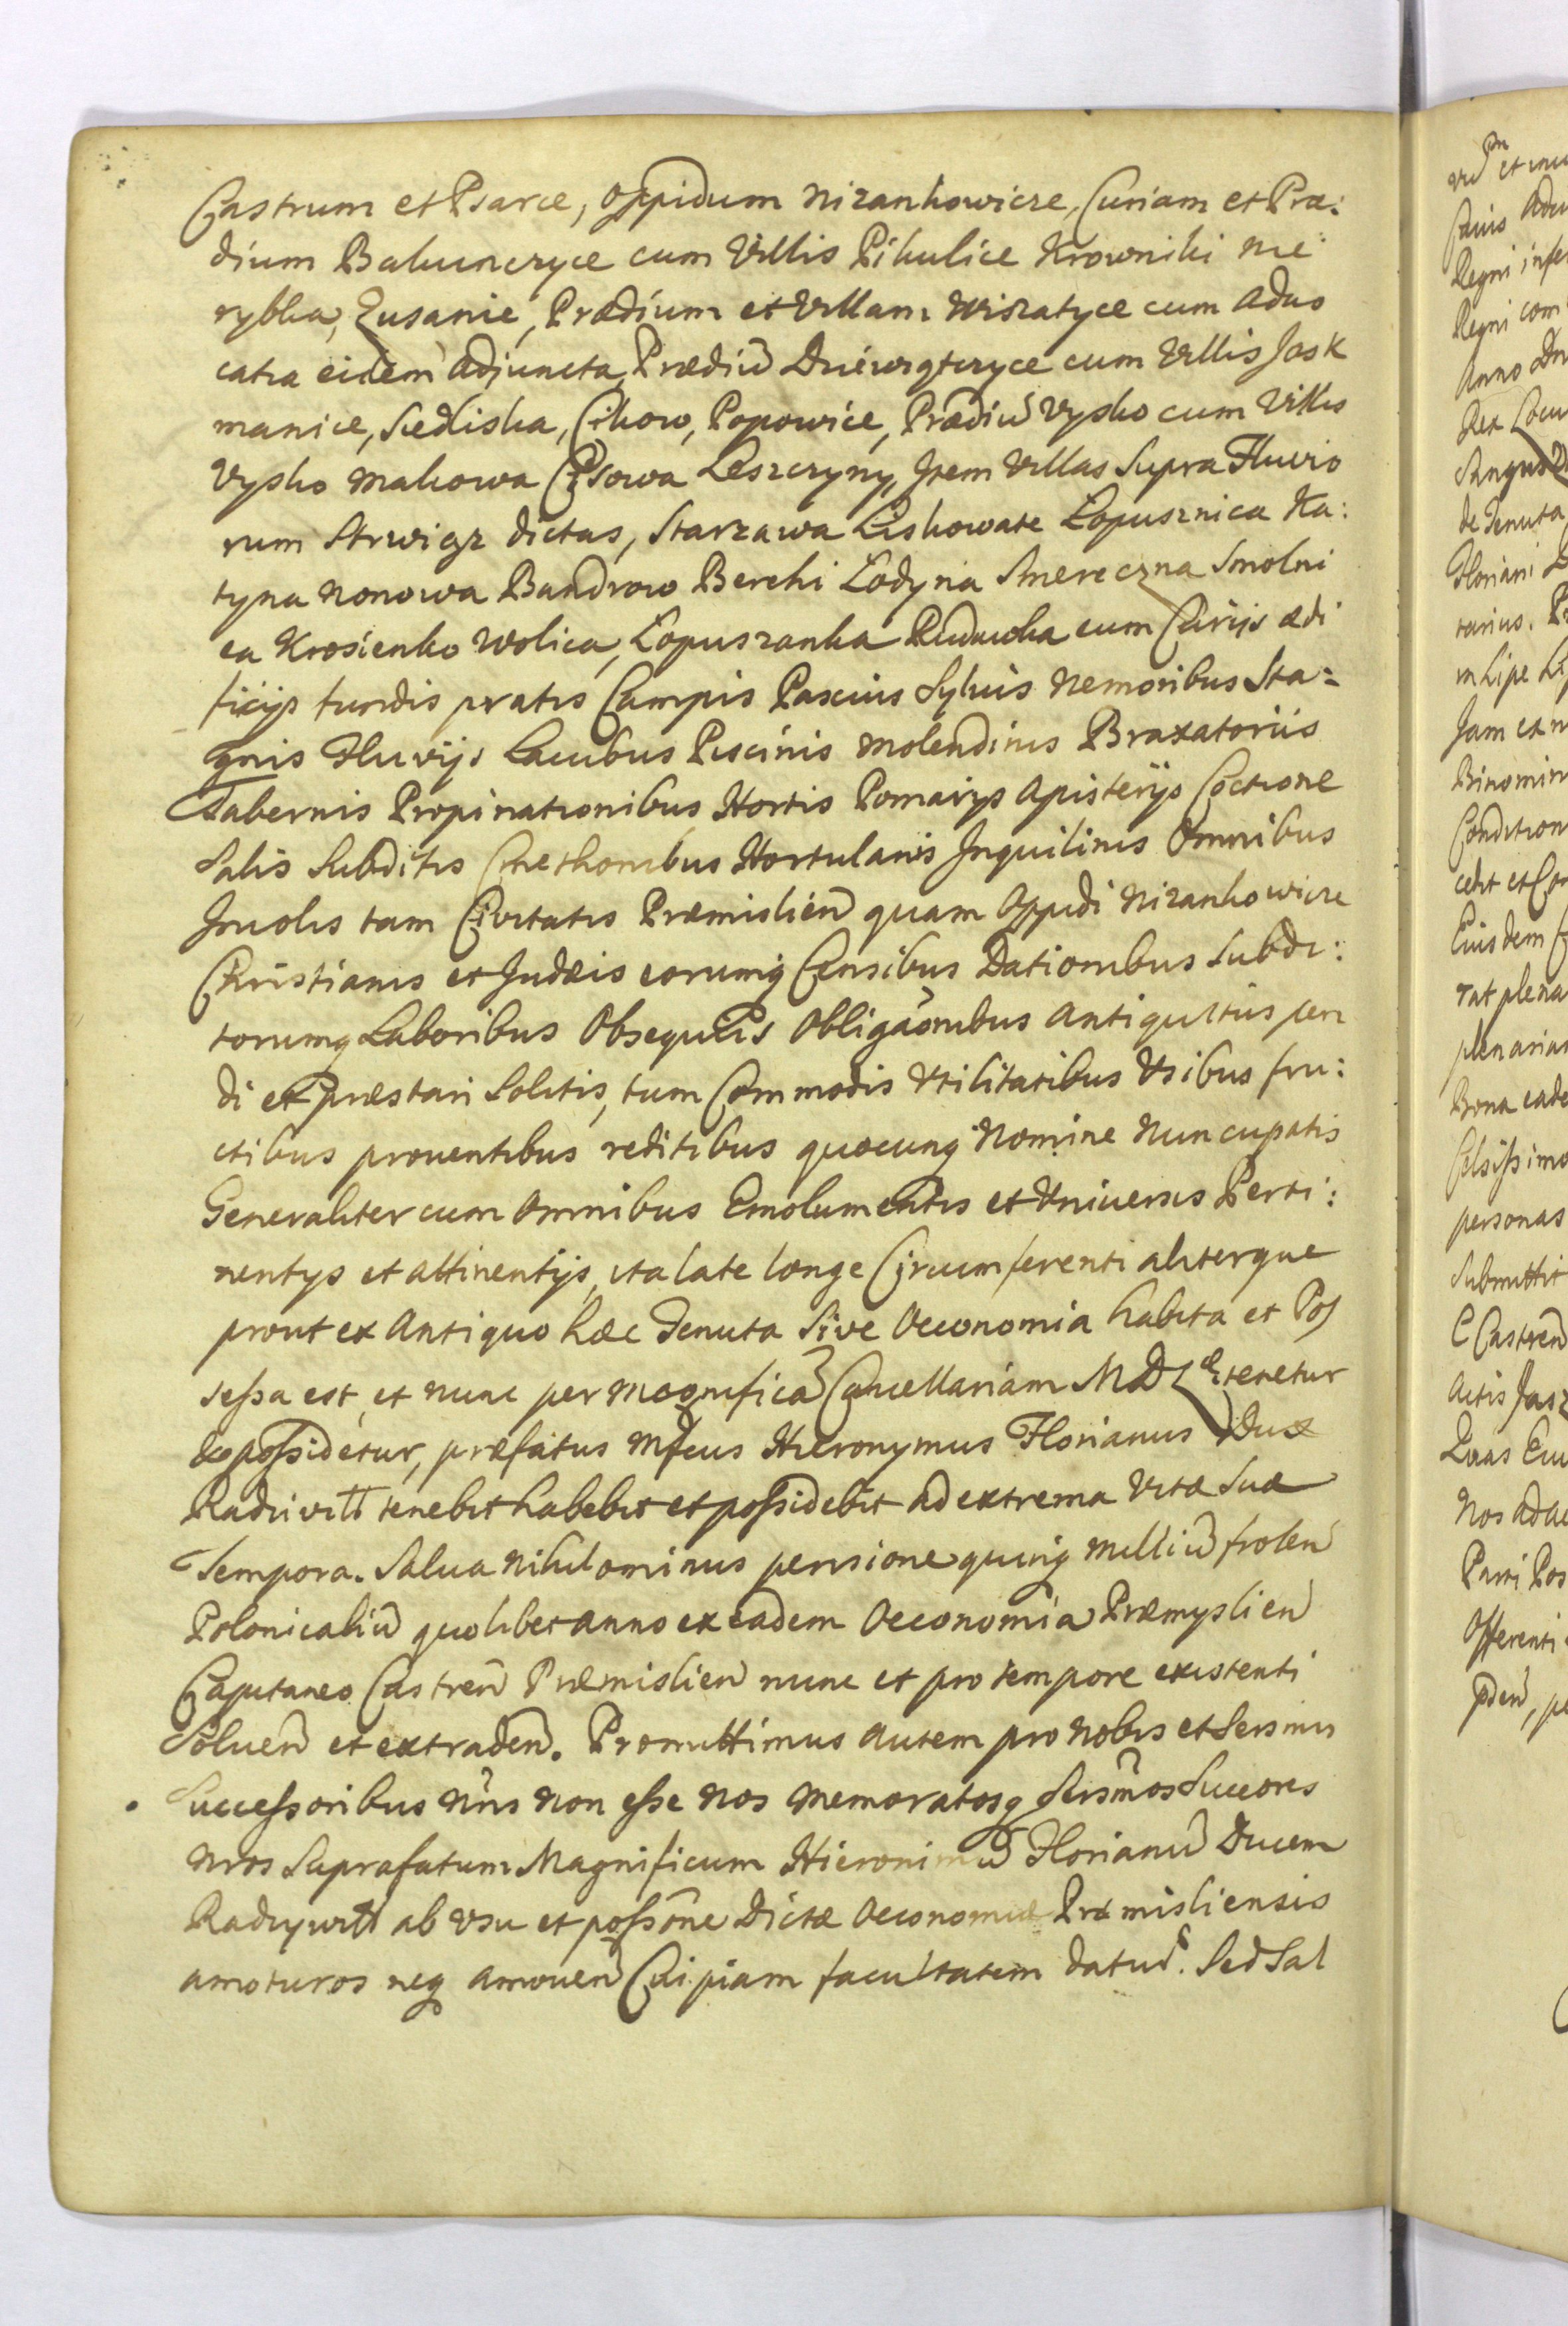 Castrum et Psarce, Oppidum Nizankowicze, Curiam et Præ:
dium Bakunczyce cum Villis Pikulice Krowniki Nie
rybka, Łusanie, Prædium et Villam Wiszatyce cum Aduo
catia eidem adjuncta, Prædiū Dziewięczyce cum Villis Jask
manice, Siedliska, Cikow, Popowice, Prædiū Vysko cum Villis
Vysko Makowa Cisowa Leszczyny, Item Villas Supra Fluvio
rum Strwigz dictas, Starzawa Liskowate Łopusznica Ka:
tyna Nonowa Bandrow Berehi Łodyna Smereczna Smolni
ca Krosienko Wolica, Łopuszanka Rudawka cum Curijs ædi
ficijs fundis pratis Campis Pascuis Sylvis Nemoribus Sta:
gnis Fluvijs Lacubus Piscinis Molendinis Braxatoriis
Tabernis Propinationibus Hortis Pomarijs Apisterijs Coctione
Salis Subditis Cmethonibus Hortulanis Inquilinis Omnibus
Incolis tam Civitatis Præmislień quam Oppidi Nizankowicze
Christianis et Judæis eorumq Censibus Dationibus Subdi:
torumq Laboribus Obsequiis Obligãonibus Antiquitus pen
di et præstari Solitis, tum Commodis Vtilitatibus Vsibus fru:
ctibus prouentibus reditibus quocunq Nomine Nuncupatis
Generaliter cum Omnibus Emolumentis et Vniuersis Perti:
nentys et attinentijs, ita late longe Circumferentialiterque
prout ex Antiquo hæc Tenuta Sive Oeconomia habita et Pos
sessa est, et nunc per Magnificã Cancellariam M D L tenetur
& possidetur, præfatus Mficus Hieronymus Florianus Dux
Radziwiłł tenebit habebit et possidebit ad extrema Vitæ Suæ
Tempora. Salua nihilominus pensione quinq milliū floreń
Polonicaliū quolibet anno ex eadem Oeconomia Præmyslień
Capitaneo Castreń Præmislień nunc et pro tempore existenti
Solueń et extradeń. Promittimus autem pro Nobis et Sersmis
Successoribus Nris non esse Nos memoratosq Sersmos Succores
Nros Suprafatum Magnificum Hieronimū Florianū Ducem
Radzywiłł ab Vsu et possõne Dictæ Oeconomiæ Præmisliensis
amoturos neq amoueń Cuipiam facultatem daturos. Sed Sal